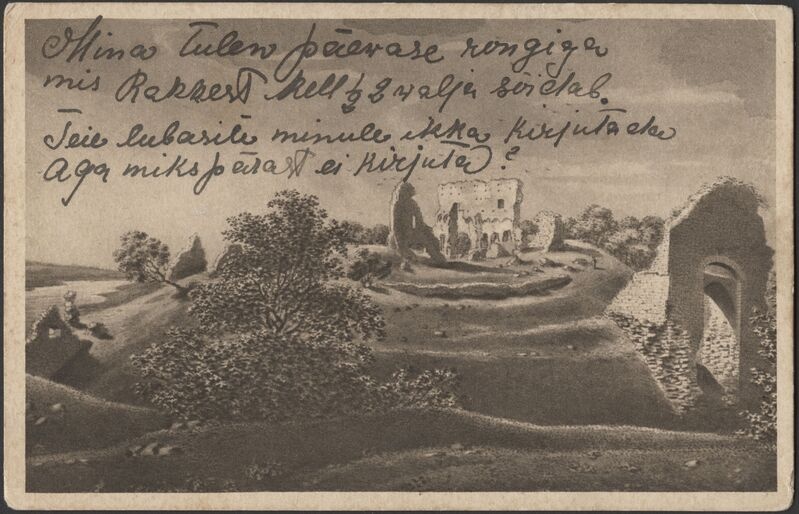 Mina Tulen päevase rongiga
mis Rakkest Kell ½ 2 valja sõidab.
Teie lubasite minule ikka kirjutada
Aga miks pärast ei kirjuta?